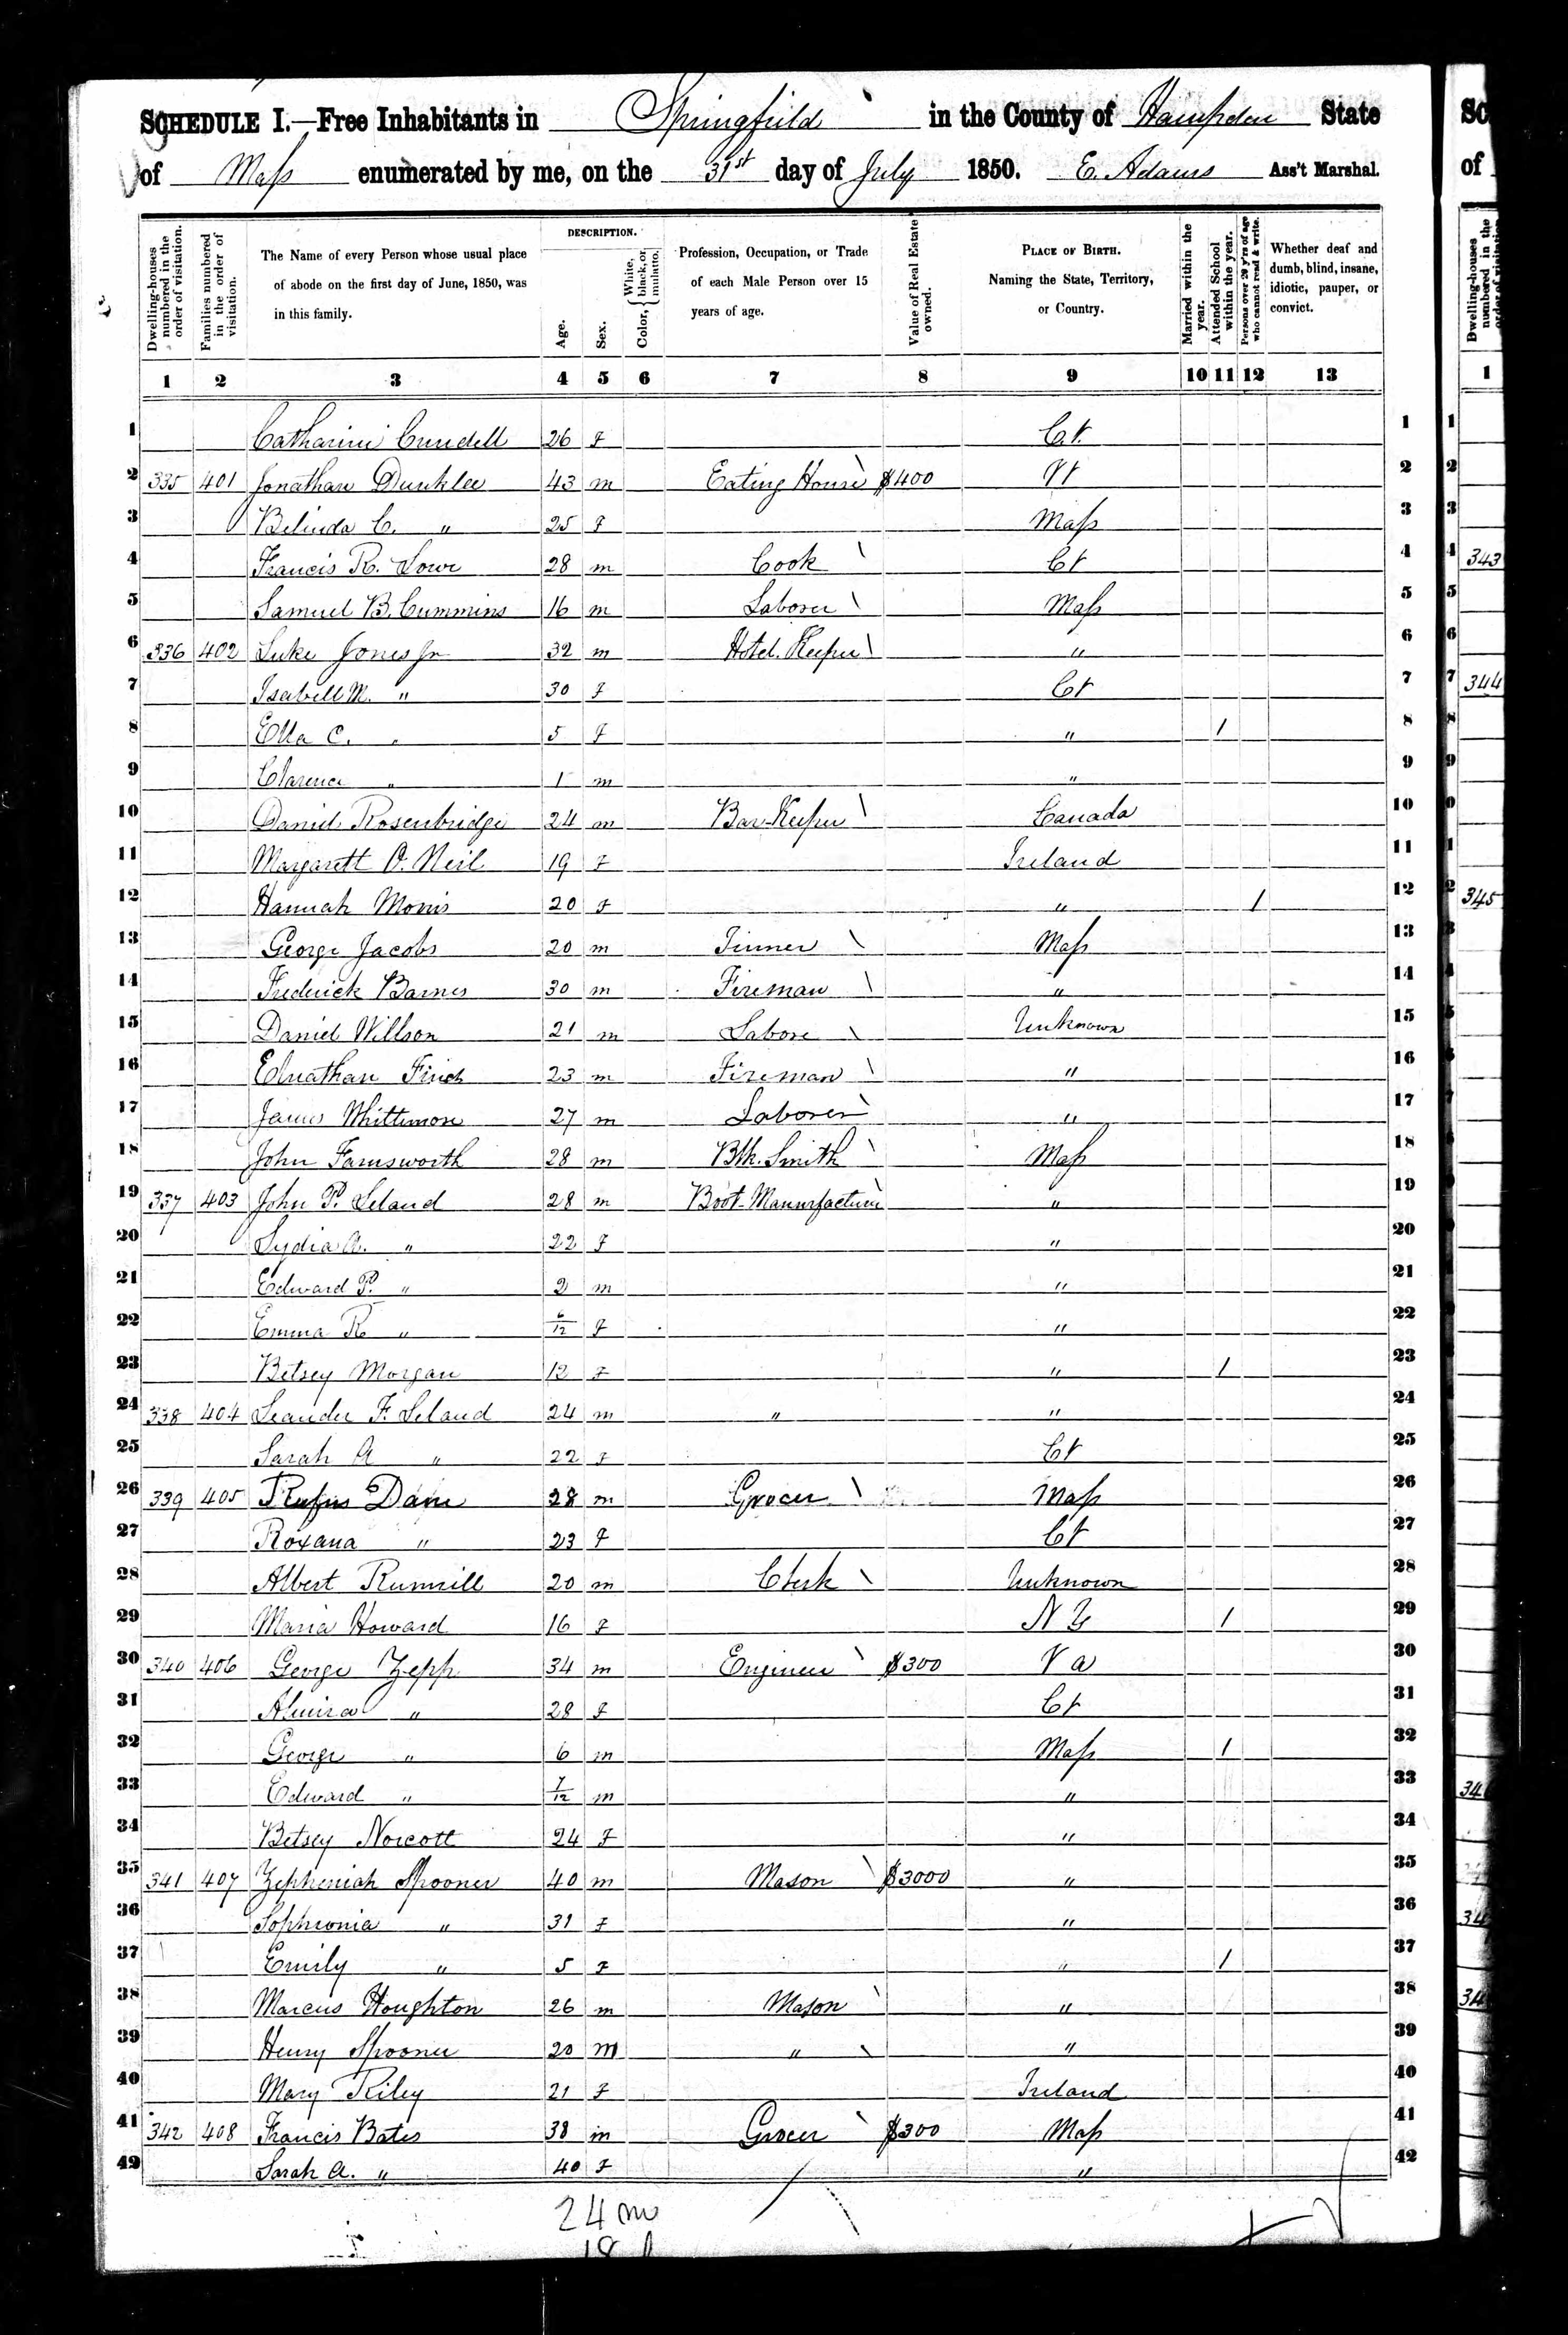 SCHEDULE I.—Free Inhabitants in Springfield in the County of Hampden State
of Mass enumerated by me, on the 31st day of July 1850. E. Adams Ass't Marshal.
Dwelling-houses numbered in the order of visitation.
Families numbered in the order of visitation.
The Name of every Person whose usual place of abode on the first day of June, 1850, was in this family.
DESCRIPTION.
Age.
Sex.
Color, { White, black, or mulatto.
Profession, Occupation, or Trade of each Male Person over 15 years of age.
Value of Real Estate owned.
PLACE OF BIRTH. Naming the State, Territory, or Country.
Married within the year.
Attended School within the year.
Persons over 20 y'rs of age who cannot read & write.
Whether deaf and dumb, blind, insane, idiotic, pauper, or convict.
1 2 3 4 5 6 7 8 9 10 11 12 13
1 Catharine Crundell 26 F Ct. 1
2 335 401 Jonathan Dunklee 43 m Eating House $400 Vt 2
3 Belinda C. " 25 F Mass 3
4 Francis R. Lowe 28 m Cook Ct 4
5 Samuel B. Cummins 16 m Laborer Mass 5
6 336 402 Luke Jones Jr 32 m Hotel Keeper " 6
7 Isabell M. " 30 F Ct 7
8 Ella C. " 5 F " 1 8
9 Clarence " 1 m " 9
10 Daniel Rosenbridge 24 m Bar-Keeper Canada 10
11 Margarett O. Neil 19 F Ireland 11
12 Hannah Morris 20 F " 1 12
13 George Jacobs 20 m Tinner Mass 13
14 Frederick Barnes 30 m Fireman " 14
15 Daniel Willson 21 m Labore Unknown 15
16 Elnathan Finch 23 m Fireman " 16
17 James Whittemore 27 m Laborer " 17
18 John Farnsworth 28 m Blk. Smith Mass 18
19 337 403 John P. Leland 28 m Boot-Manurfacturer " 19
20 Lydia A. " 22 F " 20
21 Edward P. " 2 m " 21
22 Emma R " 6/12 F " 22
23 Betsey Morgan 12 F " 1 23
24 338 404 Leander F. Leland 24 m " " 24
25 Sarah A " 22 F Ct 25
26 339 405 Rufus Dane 28 m Grocer Mass 26
27 Roxana " 23 F Ct 27
28 Albert Rumrill 20 m Clerk Unknown 28
29 Maria Howard 16 F N Y 1 29
30 340 406 George Zepp 34 m Engineer $300 Va 30
31 Almira " 28 F Ct 31
32 George " 6 m Mass 1 32
33 Edward " 7/12 m " 33
34 Betsey Norcott 24 F " 34
35 341 407 Zepheniah Spooner 40 m Mason $3000 " 35
36 Sophronia " 31 F " 36
37 Emily " 5 F " 1 37
38 Marcus Houghton 26 m Mason " 38
39 Henry Spooner 20 m " " 39
40 Mary Riley 21 F Ireland 40
41 342 408 Francis Bates 38 m Grocer $300 Mass 41
42 Sarah A. " 40 F " 42
24 m
18 f
of
Dwelling-houses numbered in the
1
343
344
345